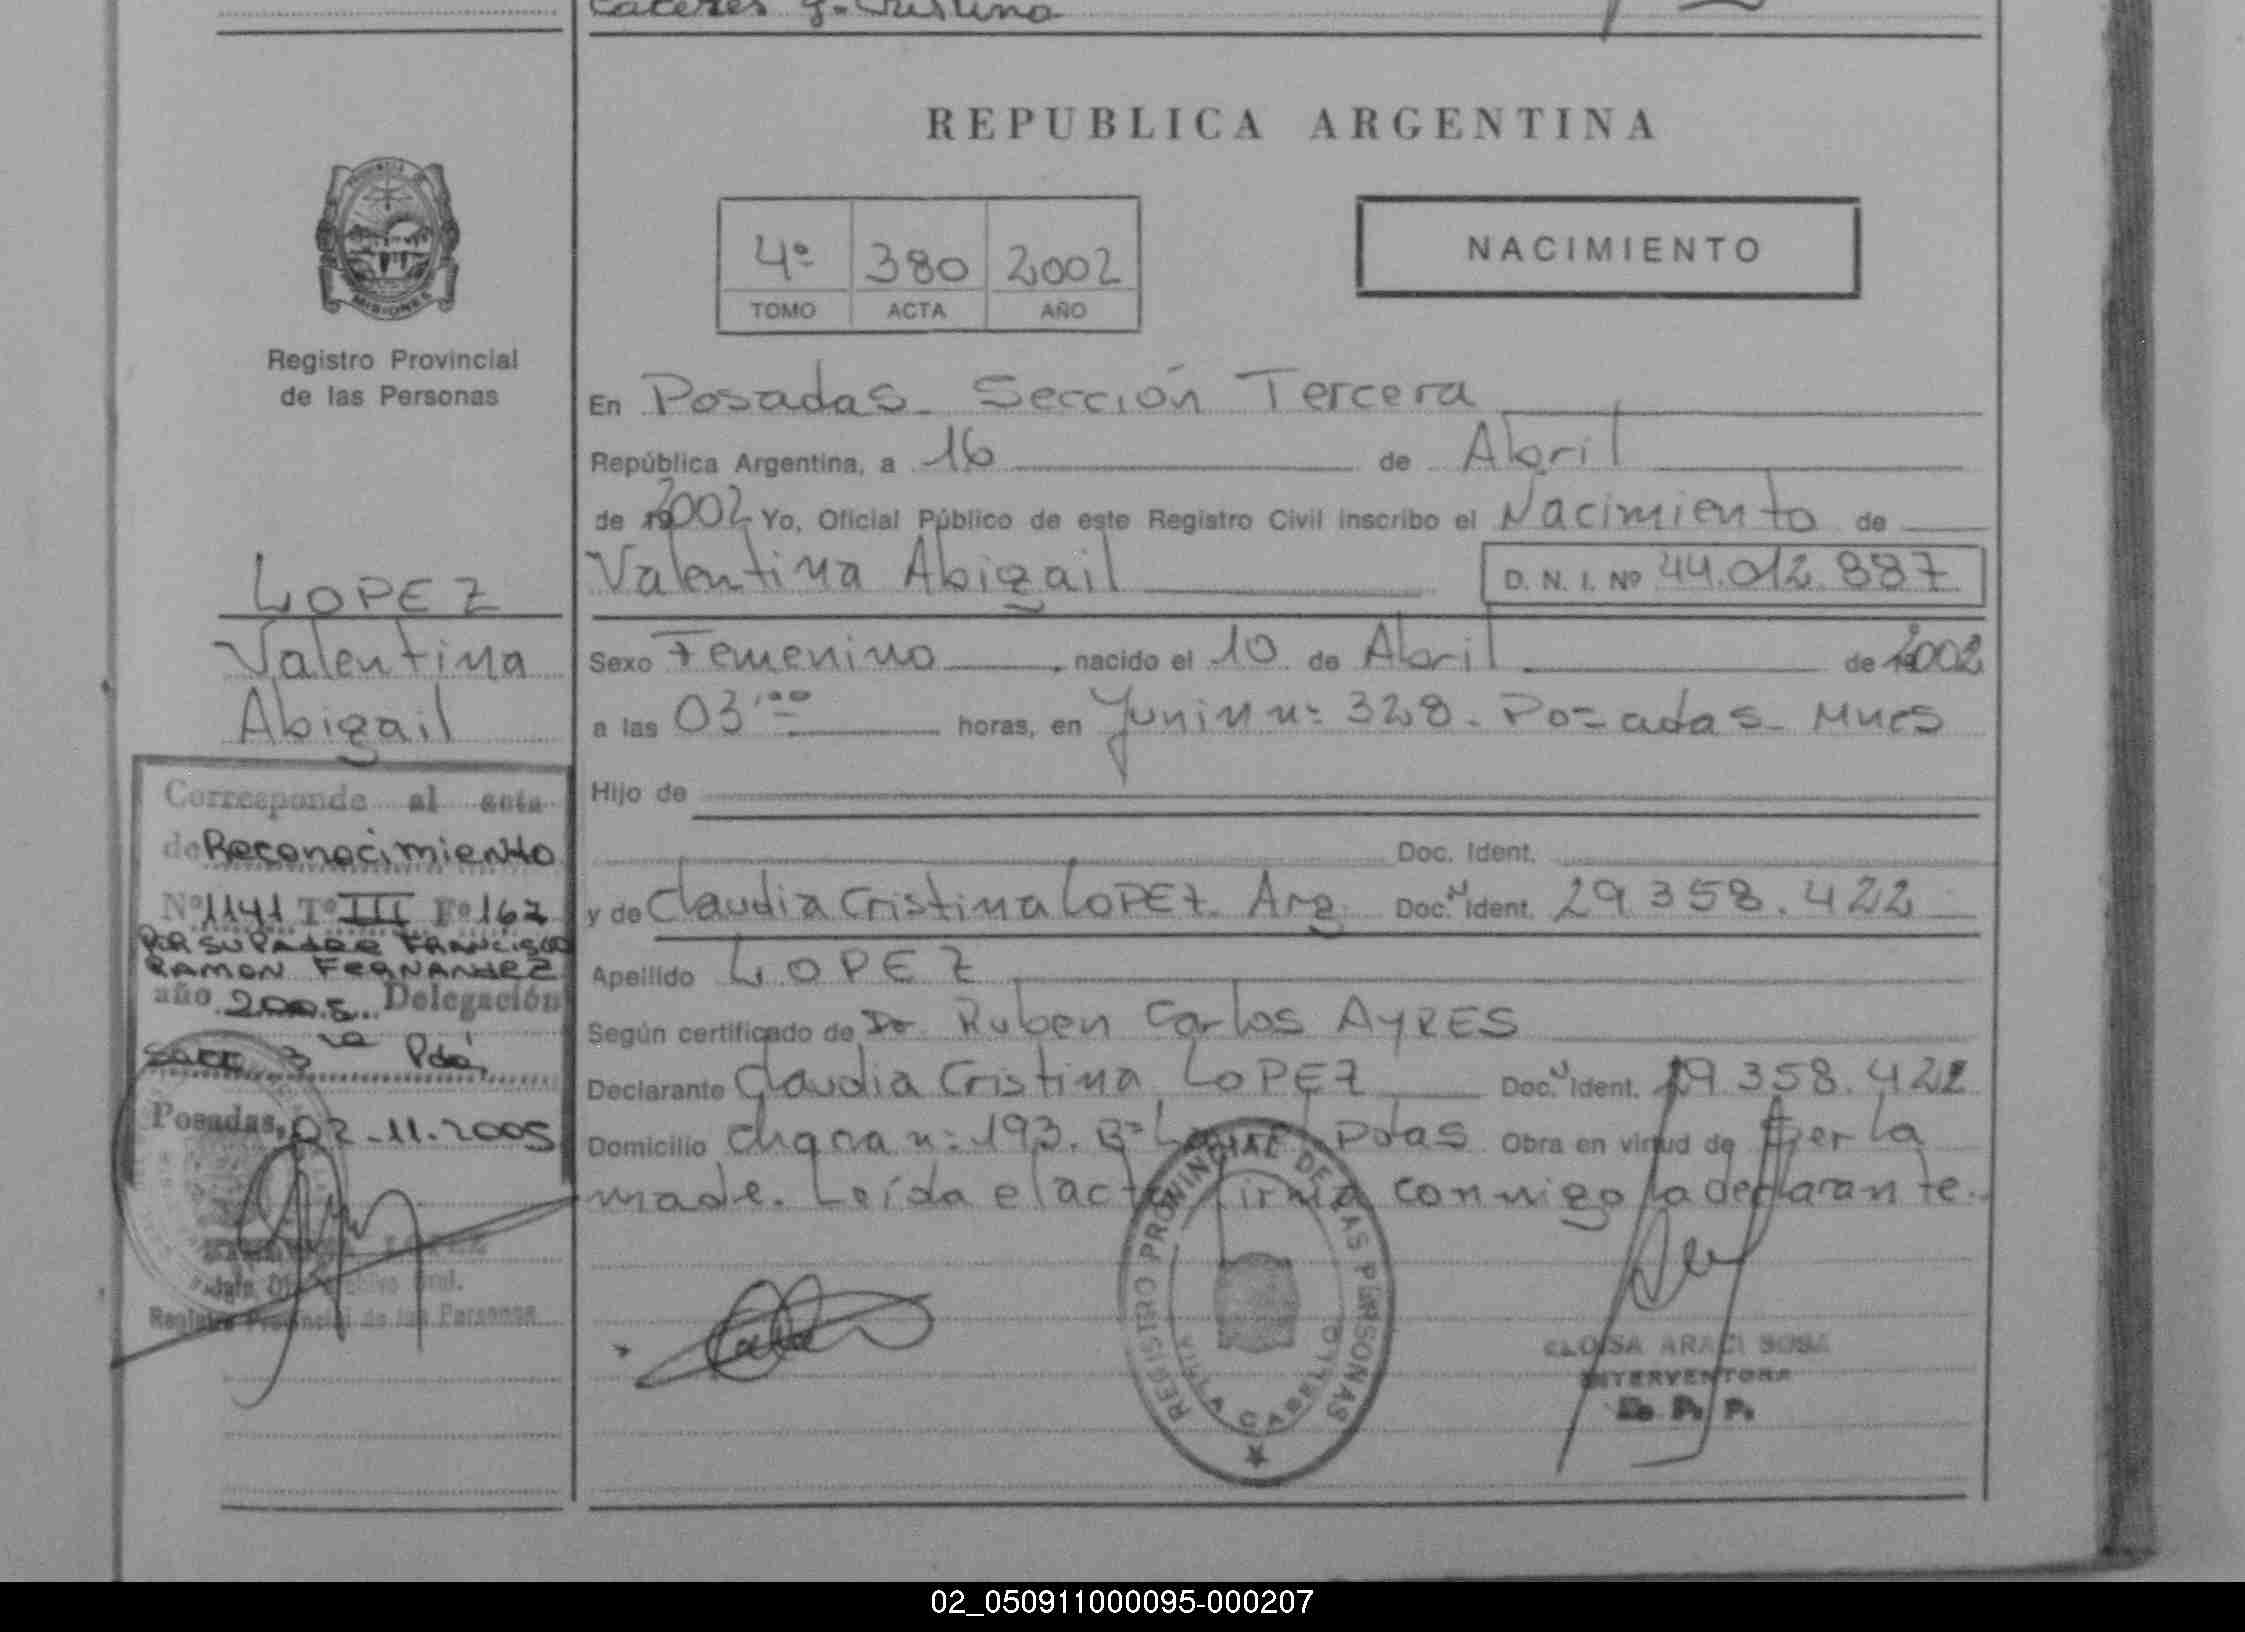 Caceres G. Cristina
REPUBLICA ARGENTINA
PROVINCIA DE
MISIONES
Registro Provincial
de las Personas
4º 380 2002
TOMO ACTA AÑO
NACIMIENTO
En Posadas Sección Tercera
República Argentina, a 16 de Abril
de 2002 Yo, Oficial Público de este Registro Civil inscribo el Nacimiento de
Valentina Abigail D. N. I. Nº 44.012.887
Sexo Femenino, nacido el 10 de Abril de 2002
a las 03'00 horas, en Junin nº 328. Posadas Mnes
Hijo de
Doc. Ident.
y de Claudia Cristina LOPEZ. Arg. Doc. Ident. 29.358.422
Apellido LOPEZ
Según certificado de Dr. Ruben Carlos AYRES
Declarante Claudia Cristina LOPEZ Doc. Ident. 29.358.422
Domicilio chacra nº 193. Bº Pdas Obra en virtud de ser la
made. Leída el acta firma conmigo la declarante.
LOPEZ
Valentina
Abigail
Corresponde al acta
de Reconocimiento
Nº 1141 Tº III Fº 167
POR SU PADRE FRANCISCO
RAMON FERNANDEZ
año 2005 Delegación
Secc 3ra Pdas
Posadas, 02-11-2005
LOPEZ
Registro Provincial de las Personas
REGISTRO PROVINCIAL DE LAS PERSONAS
VILLA CABELLO
ELOISA ARACI SOSA
INTERVENTORA
R. P. P.
02_050911000095-000207